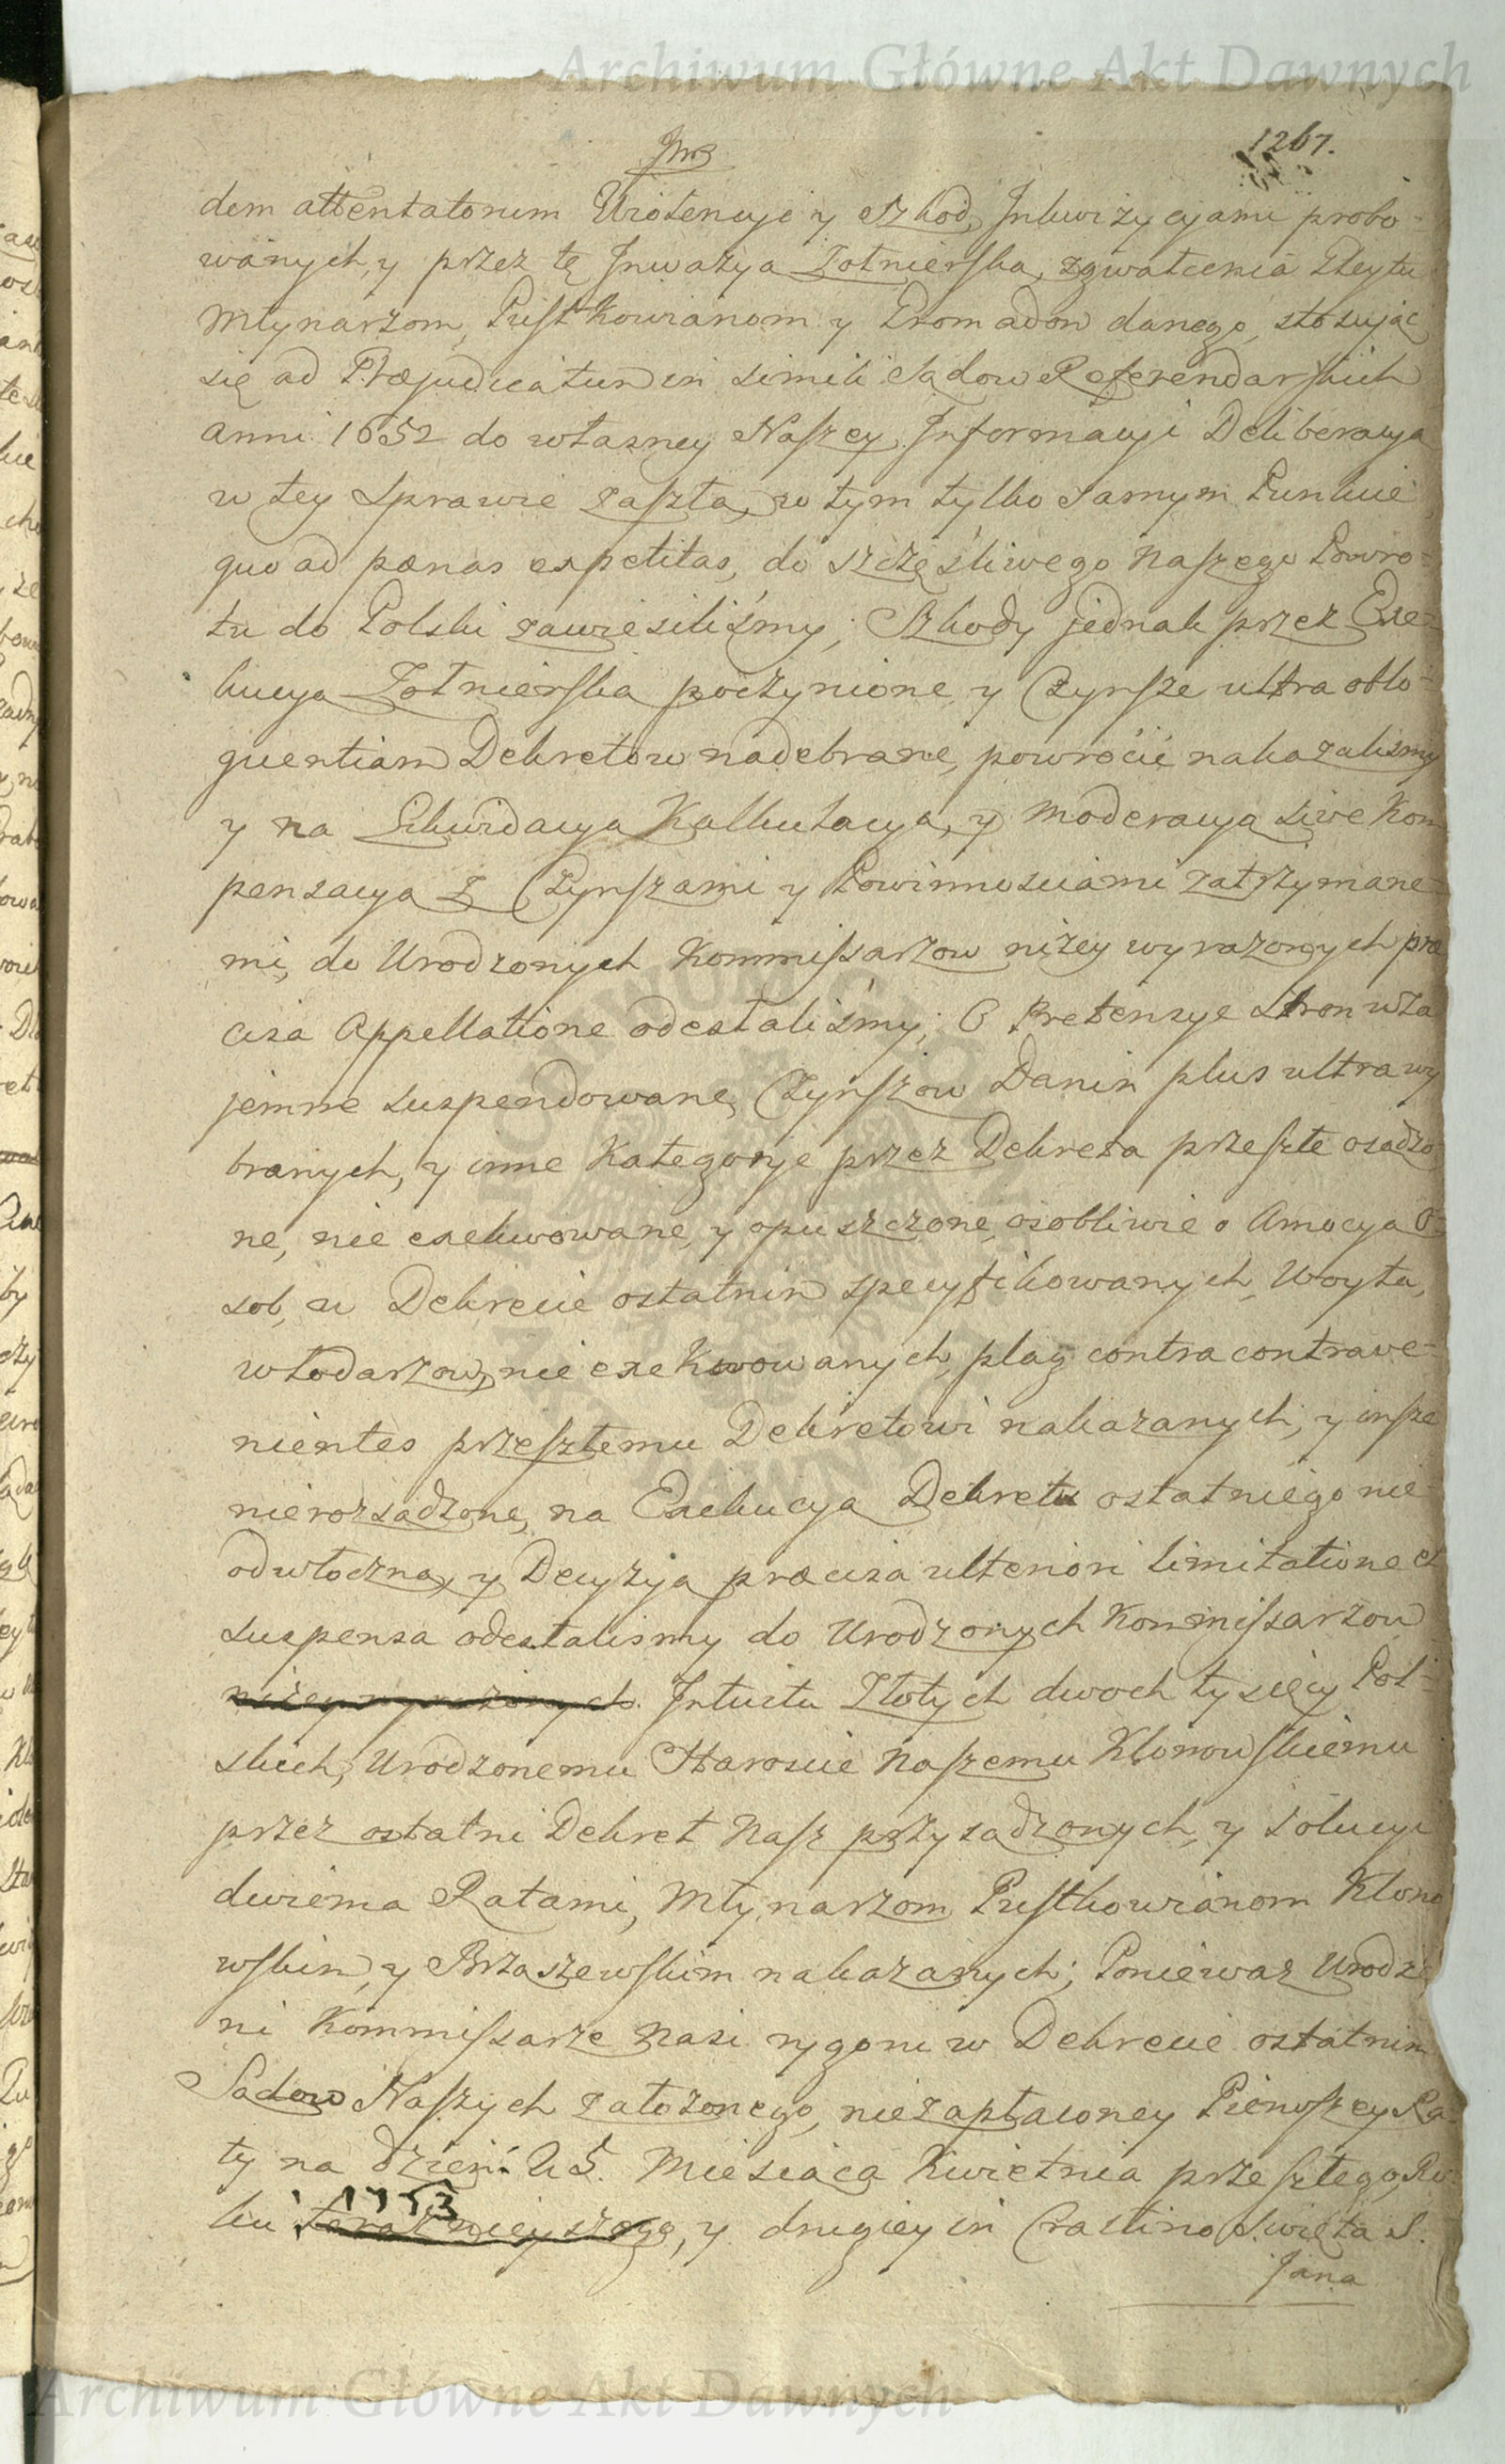 Archiwum Główne Akt Dawnych
1267.
dem attentatorum Wiolencyi y Szkod, Inkwizycyami probo-
wanych, y przez tę Inwazyą Zołnierską, zgwałcenia Gleytu
Młynarzom, Pustkowianom y Gromadom danego, stosując
się ad Præjudicatum in simili Sądow Referendarskich
anni 1652 do własney Naszey Informacyi Deliberacya
w tey Sprawie zaszła, w tym tylko samym Punkcie
quo ad pœnas expetitas, do szczęśliwego Naszego Powro-
tu do Polski zawiesiliśmy; Szkody jednak przez Exe-
kucyą Zołnierską poczynione, y Czynsze ultra oblo-
quentiam Dekretow nadebrane, powrócić nakazaliśmy
y na Likwidacyą Kalkulacyą, y Moderacyą sive Kom
pensacyą z Czynszami y Powinnościami zatrzymane-
mi, do Urodzonych Kommissarzow niżey wyrażonych præ
cisa Appellatione odesłaliśmy; O Pretensye Stron wza
jemne suspendowane, Czynszow Danin plus ultra wy
branych, y inne Kategorye przez Dekreta przeszłe osądzo
ne, nie exekwowane, y opuszczone, osobliwie o Amocyą O-
sob, w Dekrecie ostatnim specyfikowanych, Woyta,
włodarzow, nie exekwowanych, plag contra contrave-
nientes przeszłemu Dekretowi nakazanych, y insze
nierozsądzone, na Exekucyą Dekretu ostatniego nie
odwłoczną, y Decyzyą præcisa ulteriori limitatione et
suspensa odesłalismy do Urodzonych Kommissarzow
niżey wyrażonych. Intuitu Złotych dwoch tysięcy Pol-
skich, Urodzonemu Staroście Naszemu Klonowskiemu
przez ostatni Dekret Nasz przysądzonych, y Solucyi
dwiema Ratami, Młynarzom Pustkowianom Klono
wskim, y Brzaszewskim nakazanych; Ponieważ Urodzo
ni Kommissarze Nasi rygoru w Dekrecie ostatnim
Sądow Naszych założonego, niezapłaconey Pierwszey Ra-
ty na dzień 25. Miesiąca Kwietnia przeszłego Ro-
ku 1753 teraznieyszego, y drugiey in Crastino Swięta S.
Jana
Archiwum Główne Akt Dawnych